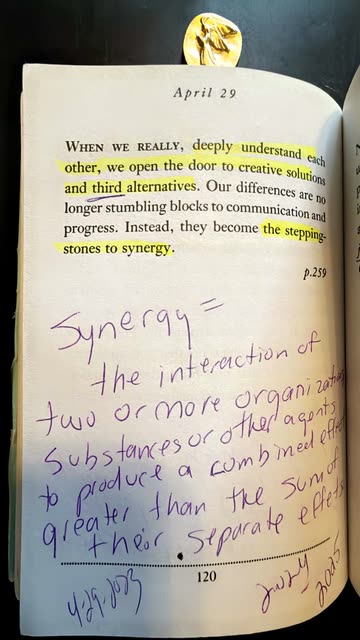 April 29
WHEN WE REALLY, deeply understand each
other, we open the door to creative solutions
and third alternatives. Our differences are no
longer stumbling blocks to communication and
progress. Instead, they become the stepping-
stones to synergy.
p.259
Synergy =
the interaction of
two or more organizations
substances or other agents
to produce a combined effect
greater than the sum of
their separate effects
120
4.29.2023
2024
2025